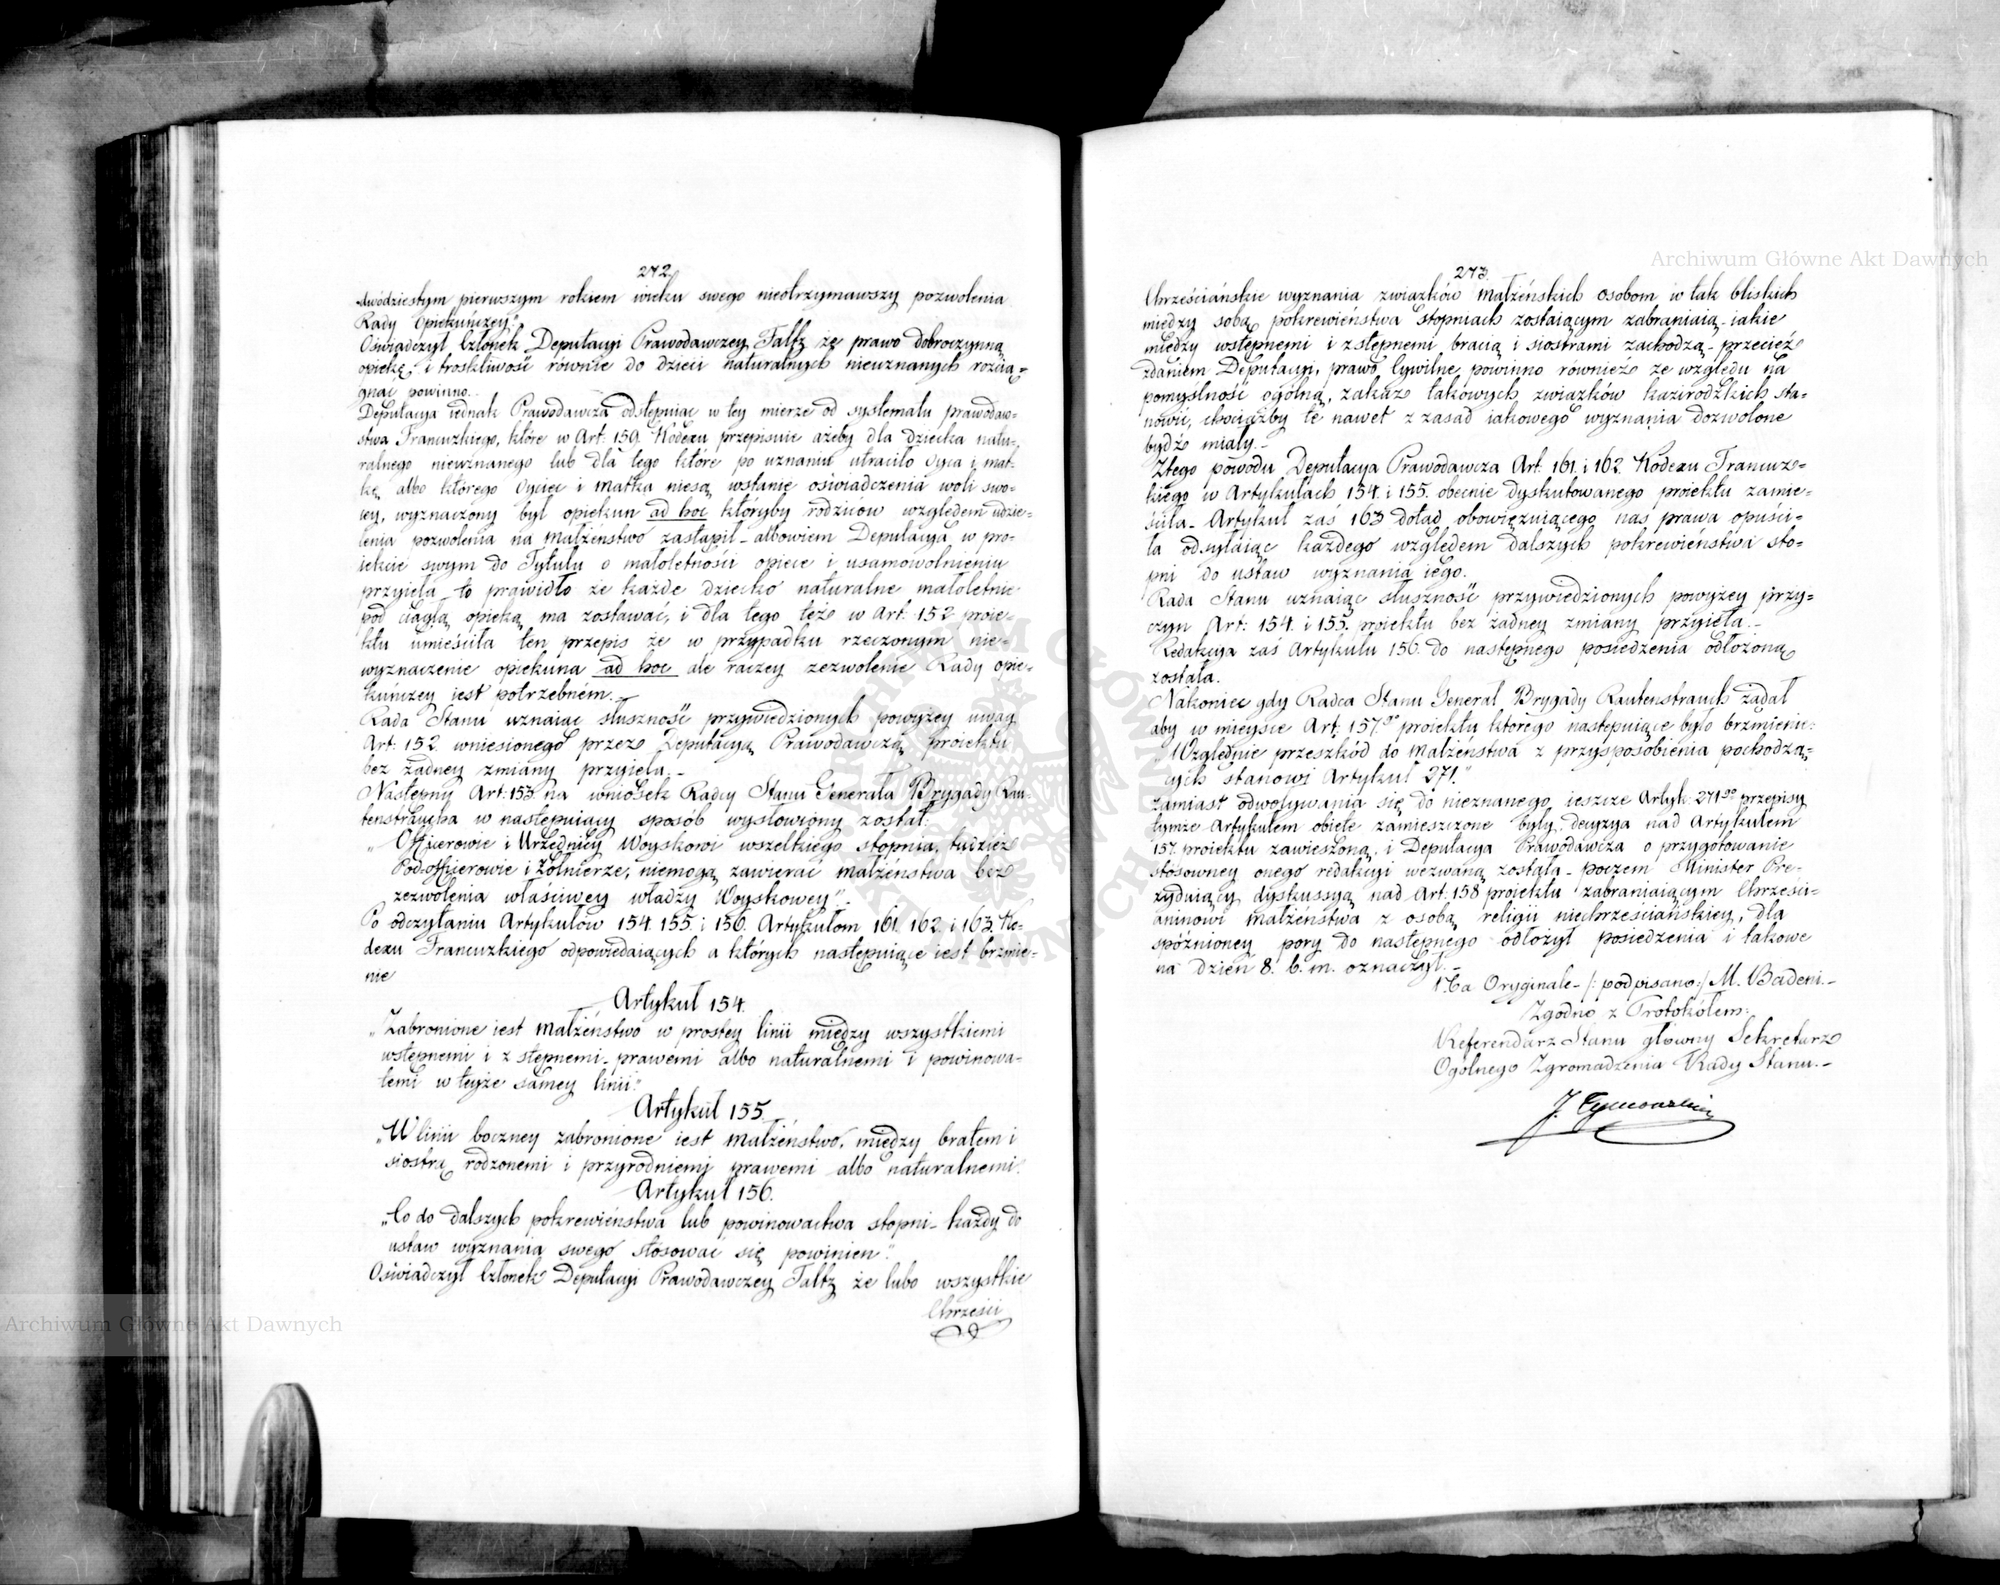 272.
dwódziestym pierwszym rokiem wieku swego nieotrzymawszy pozwolenia
Rady Opiekuńczey."
Oświadczył Członek Deputacyi Prawodawczey Faltz że prawo dobroczynną
opiekę i troskliwość równie do dzieci naturalnych nieuznanych rozcią-
gnąć powinno.
Deputacya iednak Prawodawcza odstępuiąc w tey mierze od systematu prawodaw-
stwa Francuzkiego, które w Art: 159. Kodexu przepisuie ażeby dla dziecka natu-
ralnego nieuznanego lub dla tego które po uznaniu utraciło Oyca i mat-
kę albo którego Oyciec i matka niesą wstanie oświadczenia woli swo-
iey, wyznaczony był opiekun ad hoc któryby rodziców względem udzie-
lenia pozwolenia na małżeństwo zastąpił – albowiem Deputacya w pro-
iekcie swym do Tytułu o małoletności opiece i usamowolnieniu
przyięła to prawidło że każde dziecko naturalne małoletnie
pod ciągłą opieką ma zostawać, i dla tego też w Art: 152 proie-
ktu umieściła ten przepis że w przypadku rzeczonym nie-
wyznaczenie opiekuna ad hoc ale raczey zezwolenie Rady opie-
kuńczey iest potrzebném. –
Rada Stanu uznaiąc słuszność przywiedzionych powyżey uwag
Art: 152. wniesionego przez Deputacyą Prawodawczą proiektu
bez żadney zmiany przyięła. –
Następny Art: 153 na wniosek Radcy Stanu Generała Brygady Rau-
tenstraucha w następuiący sposób wysłowiony został:
„Officerowie i Urzędnicy Woyskowi wszelkiego stopnia, tudzież
Podofficerowie i Żołnierze, niemogą zawierać małżeństwa bez
zezwolenia właściwey władzy Woyskowey". –
Po odczytaniu Artykułów 154. 155. i 156. Artykułom 161. 162. i 163. Ko-
dexu Francuzkiego odpowiedaiących a których następuiące iest brzmie-
nie
Artykuł 154.
„Zabronione iest małżeństwo w prostey linii między wszystkiemi
wstępnemi i zstępnemi – prawemi albo naturalnemi i powinowa-
temi w teyże samey linii."
Artykuł 155.
„W linii boczney zabronione iest małżeństwo, między bratem i
siostrą rodzonemi i przyrodniemi prawemi albo naturalnemi.
Artykuł 156.
„Co do dalszych pokrewieństwa lub powinowactwa stopni – każdy do
ustaw wyznania swego stosować się powinien".
Oświadczył Członek Deputacyi Prawodawczey Faltz że lubo wszystkie
Chrześci
273.
Chrześciańskie wyznania związków małżeńskich osobom w tak bliskich
między sobą pokrewieństwa stopniach zostaiącym zabraniaią – iakie
między wstępnemi i zstępnemi bracią i siostrami zachodzą – przecież
zdaniem Deputacyi, prawo Cywilne powinno również ze względu na
pomyślność ogólną, zakaz takowych związków kazirodzkich sta-
nowić, chociażby te nawet z zasad iakowego wyznania dozwolone
bydź miały. –
Ztego powodu Deputacya Prawodawcza Art. 161. i 162. Kodexu Francuz-
kiego w Artykułach 154. i 155. obecnie dyskutowanego proiektu zamie-
ściła – Artykuł zaś 163 dotąd obowięzuiącego nas prawa opuści-
ła odsyłaiąc każdego względem dalszych pokrewieństwa sto-
pni do ustaw wyznania iego.
Rada Stanu uznaiąc słuszność przywiedzionych powyżey przy-
czyn Art: 154. i 155. proiektu bez żadney zmiany przyięła. –
Redakcya zaś Artykułu 156. do następnego posiedzenia odłożoną
została.
Nakoniec gdy Radca Stanu Generał Brygady Rautenstrauch żądał
aby w mieysce Art: 157.go proiektu którego następuiące było brzmienie:
„Względnie przeszkód do małżeństwa z przysposobienia pochodzą-
cych stanowi Artykuł 271."
zamiast odwoływania się do nieznanego ieszcze Artyk: 271go przepisy
tymże Artykułem obięte zamieszczone były, decyzya nad Artykułem
157. proiektu zawieszoną, i Deputacya Prawodawcza o przygotowanie
stosowney onego redakcyi wezwaną została – poczem Minister Pre-
zyduiący dyskussyą nad Art. 158 proiektu zabraniaiącym Chrześci-
aninowi małżeństwa z osobą religii niechrześciańskiey, dla
spóźnioney pory do następnego odłożył posiedzenia i takowe
na dzień 8. b. m. oznaczył. –
Na Oryginale – /: podpisano :/ M. Badeni. –
Zgodno z Protokółem:
Referendarz Stanu główny Sekretarz
Ogólnego Zgromadzenia Rady Stanu. –
J. Tymowski
Archiwum Główne Akt Dawnych
Archiwum Główne Akt Dawnych